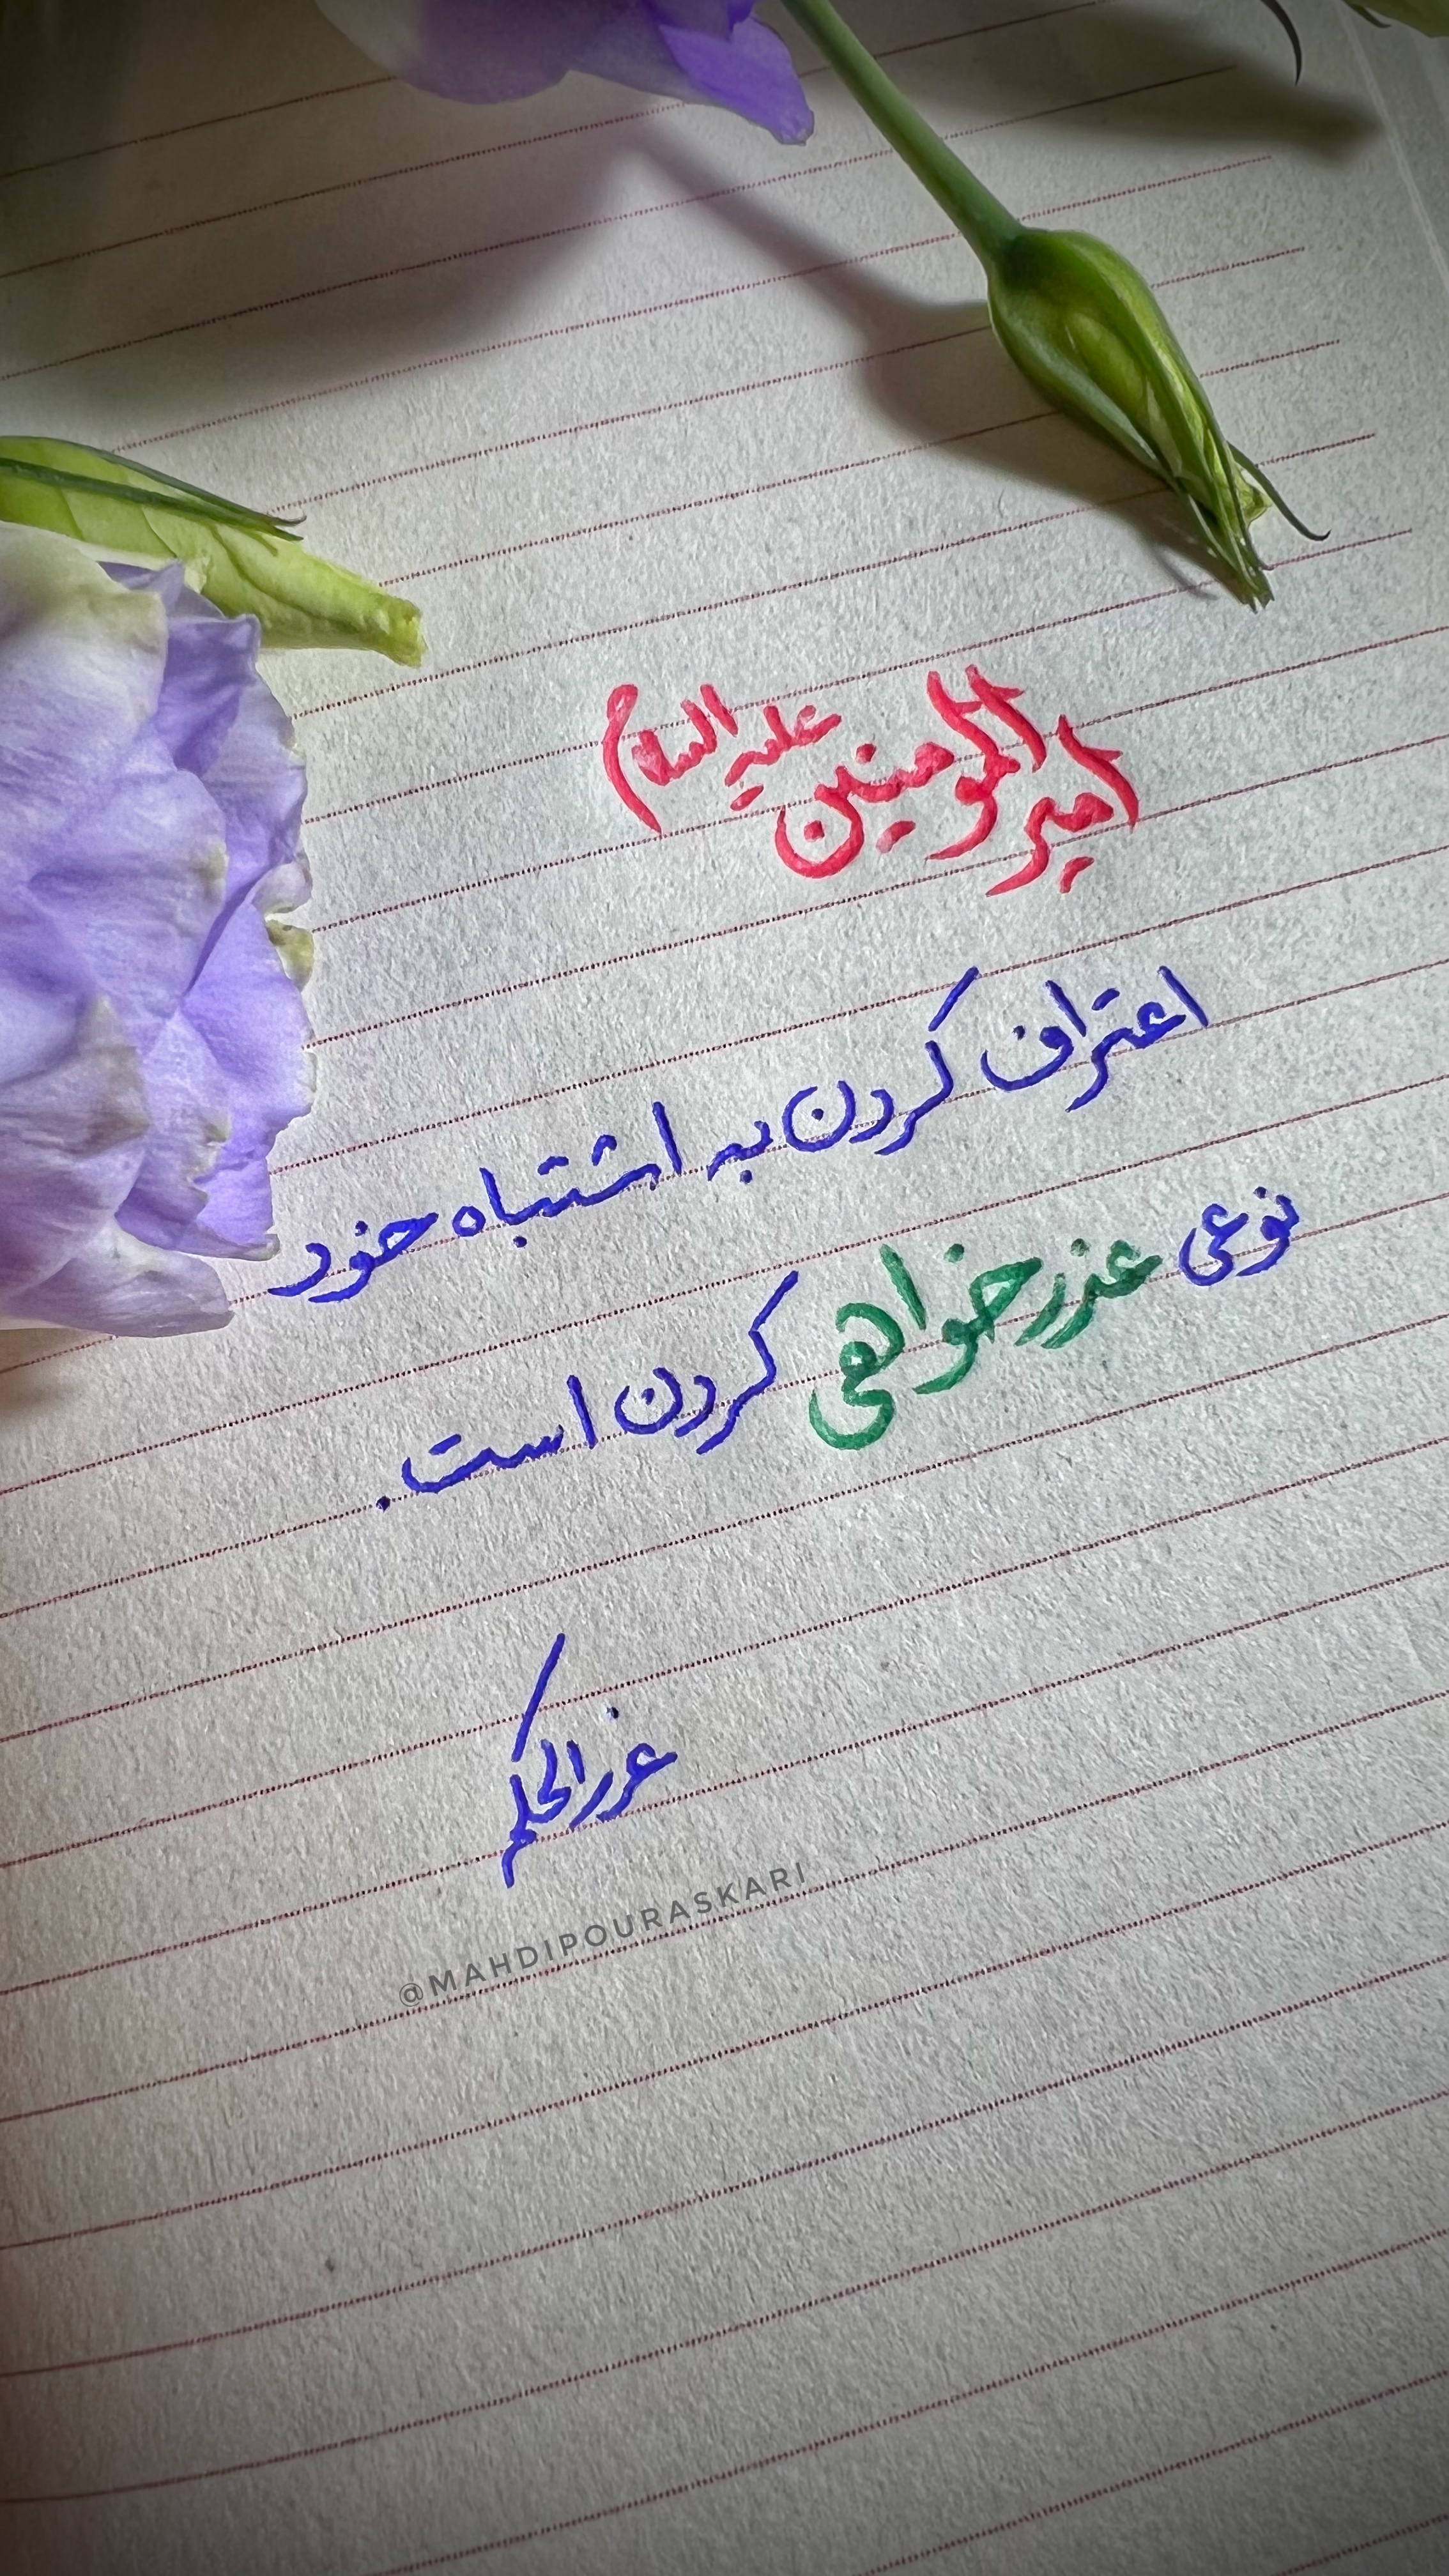 امیرالمومنین علیه السلام
اعتراف کردن به اشتباه خود
نوعی عذرخواهی کردن است.
غررالحکم
@MAHDIPOURASKARI